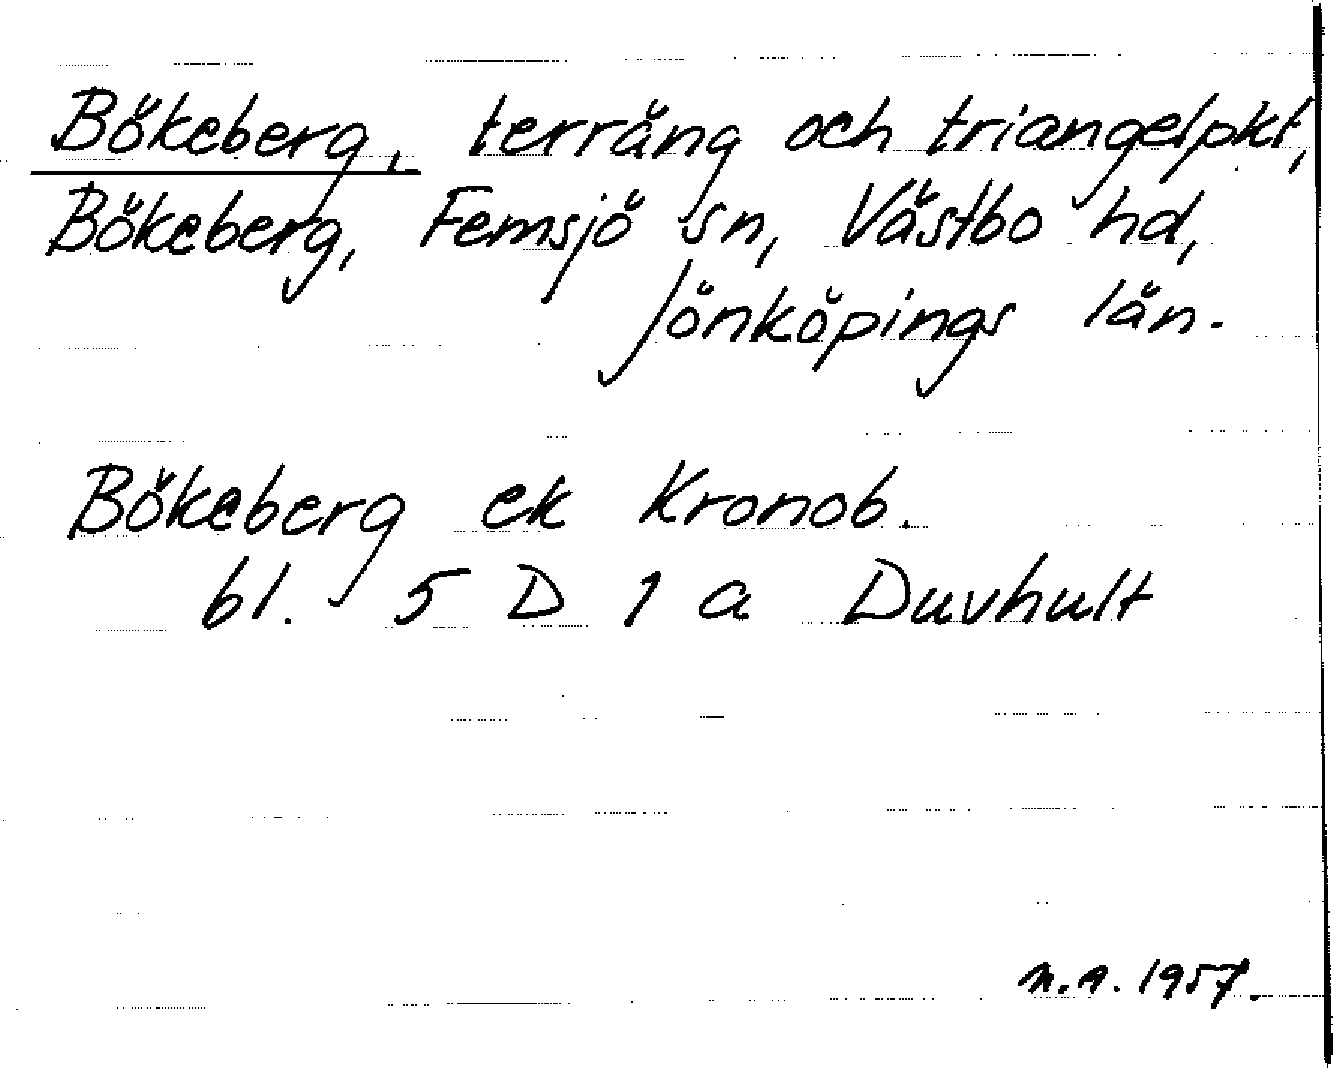 Bökeberg, terräng och triangelpkt,
Bökeberg, Femsjö sn, Västbo hd,
Jönköpings län.
Bökeberg ek Kronob.
bl. 5 D 1 a Duvhult
n.a. 1957.